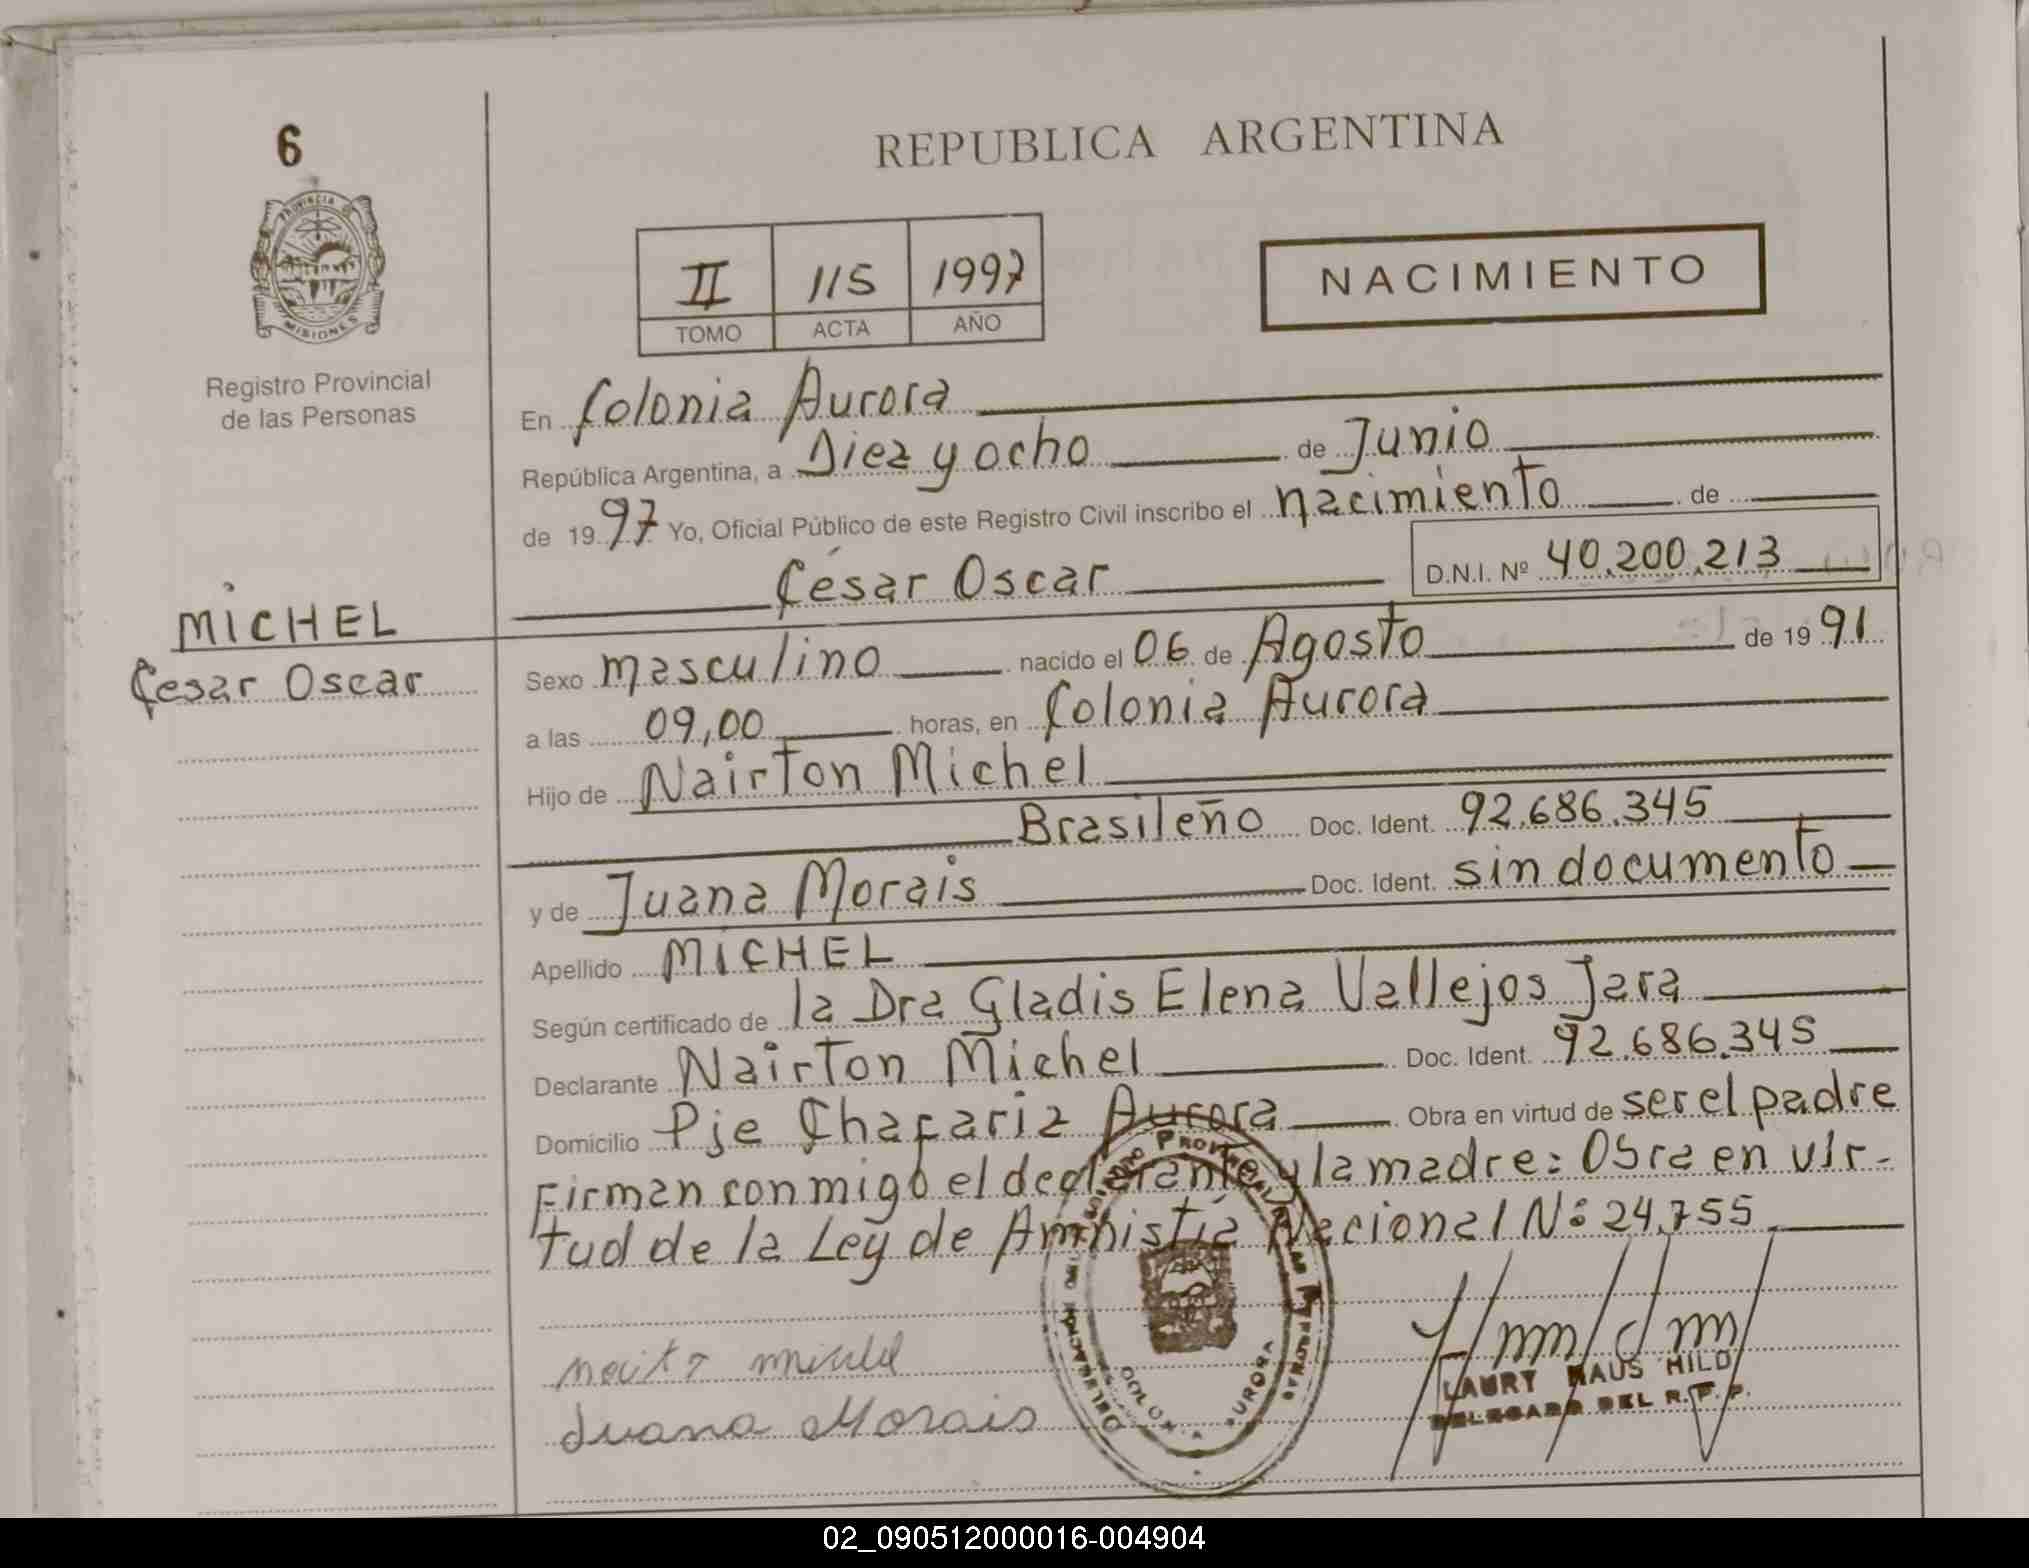 6
PROVINCIA DE
MISIONES
Registro Provincial
de las Personas
REPUBLICA ARGENTINA
II 115 1997
TOMO ACTA AÑO
NACIMIENTO
En Colonia Aurora
República Argentina, a Diez y ocho de Junio
de 1997 Yo, Oficial Público de este Registro Civil inscribo el nacimiento de
César Oscar D.N.I. Nº 40.200.213
MICHEL
Cesar Oscar
Sexo masculino nacido el 06 de Agosto de 1991
a las 09,00 horas, en Colonia Aurora
Hijo de Nairton Michel
Brasileño Doc. Ident. 92.686.345
y de Juana Morais Doc. Ident. sin documento
Apellido MICHEL
Según certificado de la Dra Gladis Elena Vallejos Jara
Declarante Nairton Michel Doc. Ident. 92.686.345
Domicilio Pje Chafariz Aurora Obra en virtud de ser el padre
Firman conmigo el declarante y la madre: Obra en vir-
tud de la Ley de Amnistía Nacional Nº 24.755
Juana Morais
LAURY MAUS HILD
DELEGADO DEL R.P.P.
02_090512000016-004904